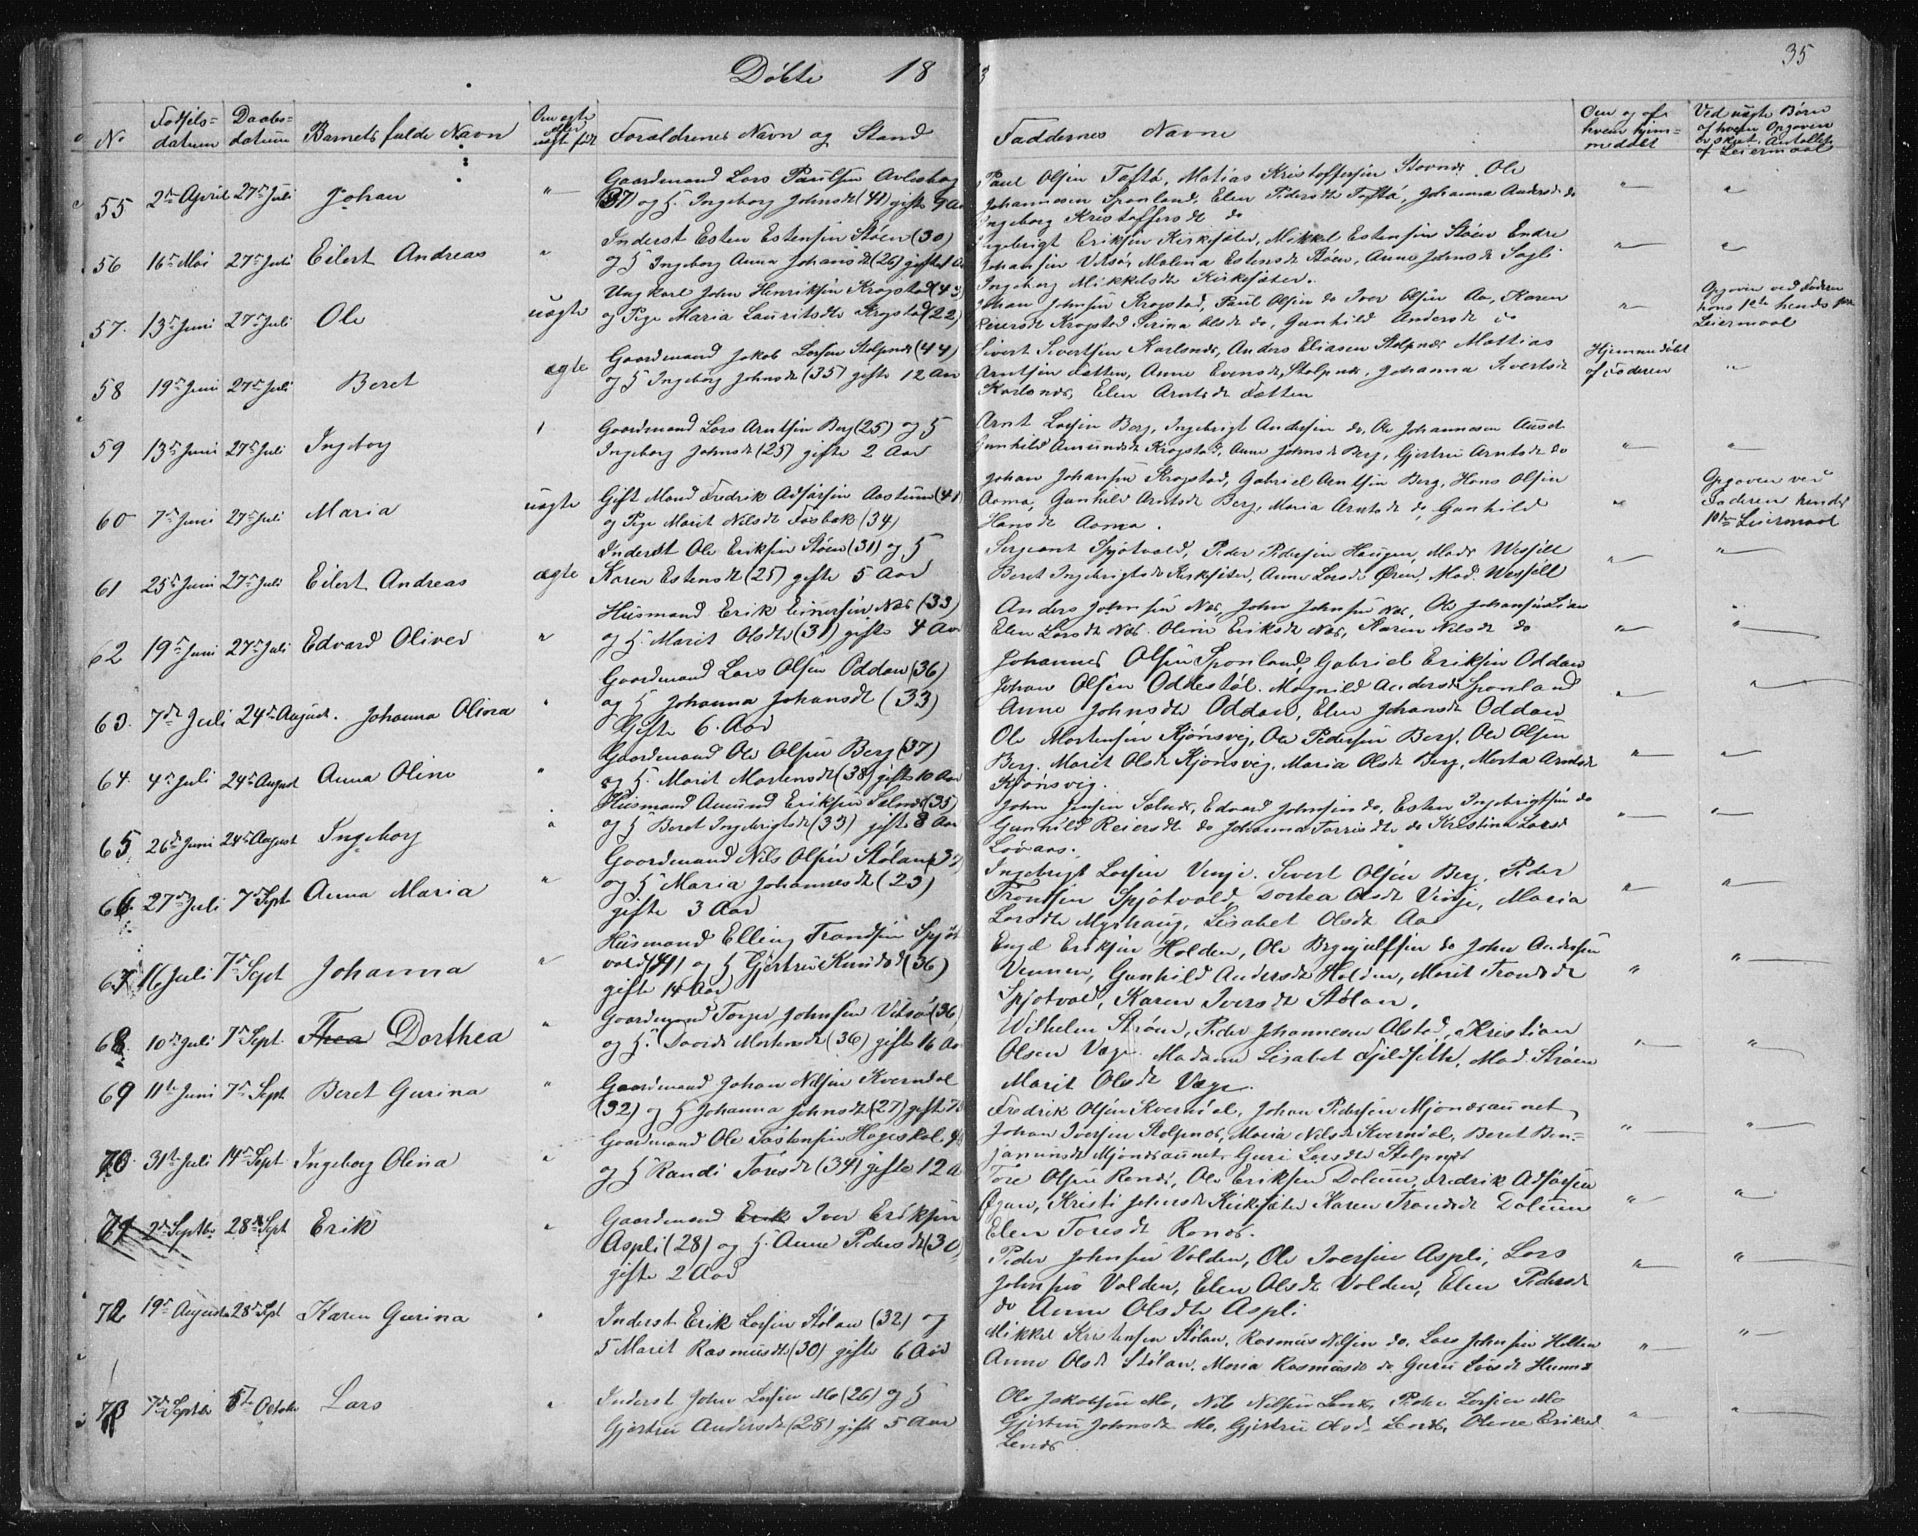 Döbte 18 3 35
No Fødsels= datum Daabs= datum Barnets fulde Navn Om ægte eller uægte født Forældrenes Navn og Stand Faddernes Navne Om og af hvem hjem= medøbt Ved uægte Børn af hvem Opgaven er skeet. Antallet af Leiermaal
55 2den April 27de Juli Johan " Gaardmand Lars Paulsen
37 og H. Ingeborg Johnsdt (41) gifte 9 Aar
Paul Olsen Taftø, Matias Kristoffersen Stovnes, Ole
Johannesen Sponland, Elen Pedersdt Taftø, Johanna Andersdt do
Ingeborg Kristoffersdt do
56 16de Mai 27de Juli Eilert Andreas " Inderst Esten Estensen Støen (30)
og H Ingeborg Anna Johansdt (26) gifte
Ingebrigt Eriksen Kirksæter, Mikkel Estensen Støen Endre
Johansen Vitsø, Malena Estensdt Støen, Anne Johnsdt
Ingeborg Mikkelsdt Kirksæter.
57. 13de Juni 27de Juli Ole uægte Ungkarl John Henriksen Krogstad (43)
og Pige Maria Lauritsdtr Krogstad (22)
Johan Johnsen Krogstad, Paul Olsen do Iver Olsen Aa, Karen
Reiersdt Krogstad Serina Olsdt do, Gunhild Andersdt do
Opgaven ved Faderen
hans 1ste hendes
Leiermaal
58 19de Juni 27de Juli Beret ægte Gaardmand Jakob Larsen Stolpnes (44)
og H Ingeborg Johnsdt (35) gifte 12 Aar
Sivert Sivertsen Karlsnes, Anders Eliasen Stolpnes Mattias
Arntsen Fætten, Anne Evensdt Stolpnes, Johanna Sivertsdt
Karlsnes, Elen Arntsdt Fætten
Hjemmedøbt
af Faderen
59 13de Juni 27de Juli Ingeborg Gaardmand Lars Arntsen Berg (25) og H
Ingeborg Johnsdt (25) gifte 2 Aar
Arnt Larsen Berg, Ingebrigt Andersen do, Ole Johannesen
Gunhild Amundsdt Krogstad, Anne Johnsdt Berg, Gjertru Arntsdt do
60 7de Juni 27de Juli Maria uægte Gift Mand Fredrik Adsersen Aastum (41)
og Pige Marit Nilsdt Forbak (34)
Johan Johansen Krogstad, Gabriel Arntsen Berg, Hans Olsen
Aama, Gunhild Arntsdt Berg, Maria Arntsdt do, Gunhild
Hansdt Aama.
Opgaven ved
Faderen hendes
1ste Leiermaal
61 25de Juni 27de Juli Eilert Andreas ægte Inderst Ole Eriksen Støen (31) og H
Karen Estensdt (25) gifte 5 Aar
Sergeant Spjotvold, Peder Pedersen Haugen, Mads Wessel
Beret Ingebrigtsdt Kirksæter, Anne Larsdt Øren, Mad. Wessel
62 19de Juni 27de Juli Edvard Oliver " Husmand Erik Einersen Næs (33)
og H. Marit Olsdtr (31) gifte 4 Aar
Anders Johnsen Næs, John Johnsen Næs, Ole Johansen Lian
Elen Larsdt Næs. Oline Eriksdt Næs, Karen Nilsdt do
63. 7de Juli 24de August. Johanna Olina " Gaardmand Lars Olsen Oddan (36)
og H Johanna Johansdt (33)
Gifte 6. Aar
Johannes Olsen Sponland, Gabriel Eriksen Oddan
Johan Olsen Oddestøl. Magnild Andersdt Sponland
Anne Johnsdtr Oddan, Elen Johansdt Oddan
64. 4de Juli 24de August Anna Oline " Gaardmand Ole Olsen Berg (37)
og H. Marit Mortensdt (38) gifte 10 Aar
Ole Mortensen Kjønsvig, Ole Pedersen Berg. Ole Olsen
Berg. Marit Olsdt Kjønsvig. Maria Olsdt Berg, Marta Arntsdt
Kjønsvig.
65 26de Juni 24de August Ingeborg " Husmand Amund Eriksen Selnes (35)
og H Beret Ingebrigtsdt (33) gifte 8 Aar
John Jensen Selnes, Edvard Johnsen do, Esten Ingebrigtsen do
Gunhild Reiersdt do Johanna Torrisdtr do Kristina Larsdt
66. 27de Juli 7de Sept Anna Maria " Gaardmand Nils Olsen Stølan
og H Maria Johannesdt (23)
gifte 3 Aar
Ingebrigt Larsen Venje. Sivert Olsen Berg, Peder
Trondsen Spjotvold, Dortea Olsdt Vinje, Maria
Larsdtr Myrhaug, Lisabet Olsdt Aa
67 16 Juli 7de Sept Johanna " Husmand Elling Trondsen Spjot
vold (41) og H Gjertru Knudsd (36)
gifte 14 Aar
Engel Eriksen Holden, Ole do John Andersen
Vennen, Gunhild Andersdt Holden, Marit Trondsdt
Spjotvold, Karen Iversdt Stølan.
68. 10de Juli 7de Sept. Thea Dorthea " Gaardmand Torger Johnsen Vitsø (36)
og H. Mortensdt (36) gifte 16 Aar
Wilhelm Strøm, Peder Johannesen Olstad, Kristian
Olsen Væge. Madame Lisabet Fjeldseth, Mad. Strøm
Marit Olsdt Væge.
69 11te Juni 7de Sept Beret Gurina " Gaardmand Johan Nilsen Kverndal
(32) og H Johanna Johnsdt (27) gifte
Fredrik Olsen Kverndal, Johan Pedersen Mjønesaunet
Johan Iversen Stolpnes, Maria Nilsdt Kverndal, Beret Ben=
jaminsdt Mjønesaunet, Guri Larsdtr Stolpnes
70. 31te Juli 14de Sept Ingeborg Olina " Gaardmand Ole Tostensen
og H Randi Toresdt (34) gifte 12 A
Tore Olsen Rones, Ole Eriksen Dolum, Fredrik Adsersen
Øyan, Kristi Johnsdt Kirksæter Karen Trondsdt Dolum
Elen Toresdt Rones.
71 2de Septbr 28de Sept Erik " Gaardmand Erik Iver Eriksen
Aspli (28) og H. Anne Pedersdt (30)
gifte 2 Aar
Peder Johnsen Volden, Ole Iversen Aspli, Lars
Johnsen Volden, Elen Olsdt Volden, Elen Pedersdt
do Anne Olsdtr Aspli
72 19de August 28de Sept Karen Gurina " Inderst Erik Larsen Stølan (32) og
H Marit Rasmusdt (30) gifte 6 Aar
Mikkel Kristensen Stølan, Rasmus Nilsen do. Lars Johnsen Holten
Anne Olsdt Stølan. Maria Rasmusdt do Guru Larsdt
73 7de Septbr 5te Octobr Lars " Inderst John Larsen Mo (26) og H
Gjertru Andersdt (28) gifte 5 Aar
Ole Jakobsen Mo, Nils Nilsen Lenes, Peder Larsen Mo
Gjertru Johnsdt Mo, Gjertru Olsdt Lenes, Oline Eriksd
Lenes